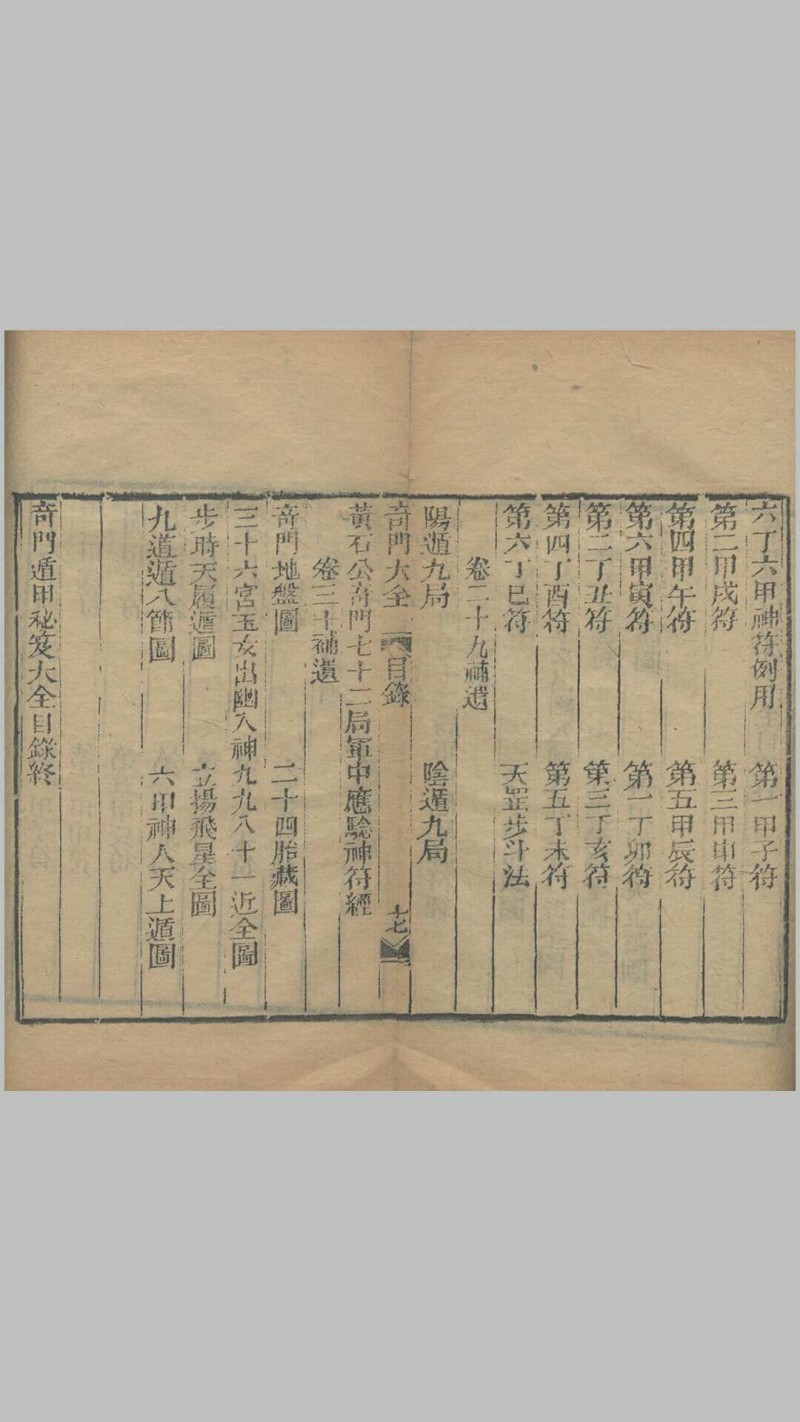 六丁六甲神符例用　第一甲子符
第二甲戌符　第三甲申符
第四甲午符　第五甲辰符
第六甲寅符　第一丁卯符
第二丁丑符　第三丁亥符
第四丁酉符　第五丁未符
第六丁巳符　天罡步斗法
卷二十九補遺
陽遁九局　陰遁九局
奇門大全　目錄　七
黃石公奇門七十二局軍中應驗神符經
卷三十補遺
奇門地盤圖　二十四胎藏圖
三十六宮玉女出幽入神九九八十一近全圖
步時天履遁圖　立揚飛星全圖
九道遁八節圖　六甲神人天上遁圖
奇門遁甲秘笈大全目錄終